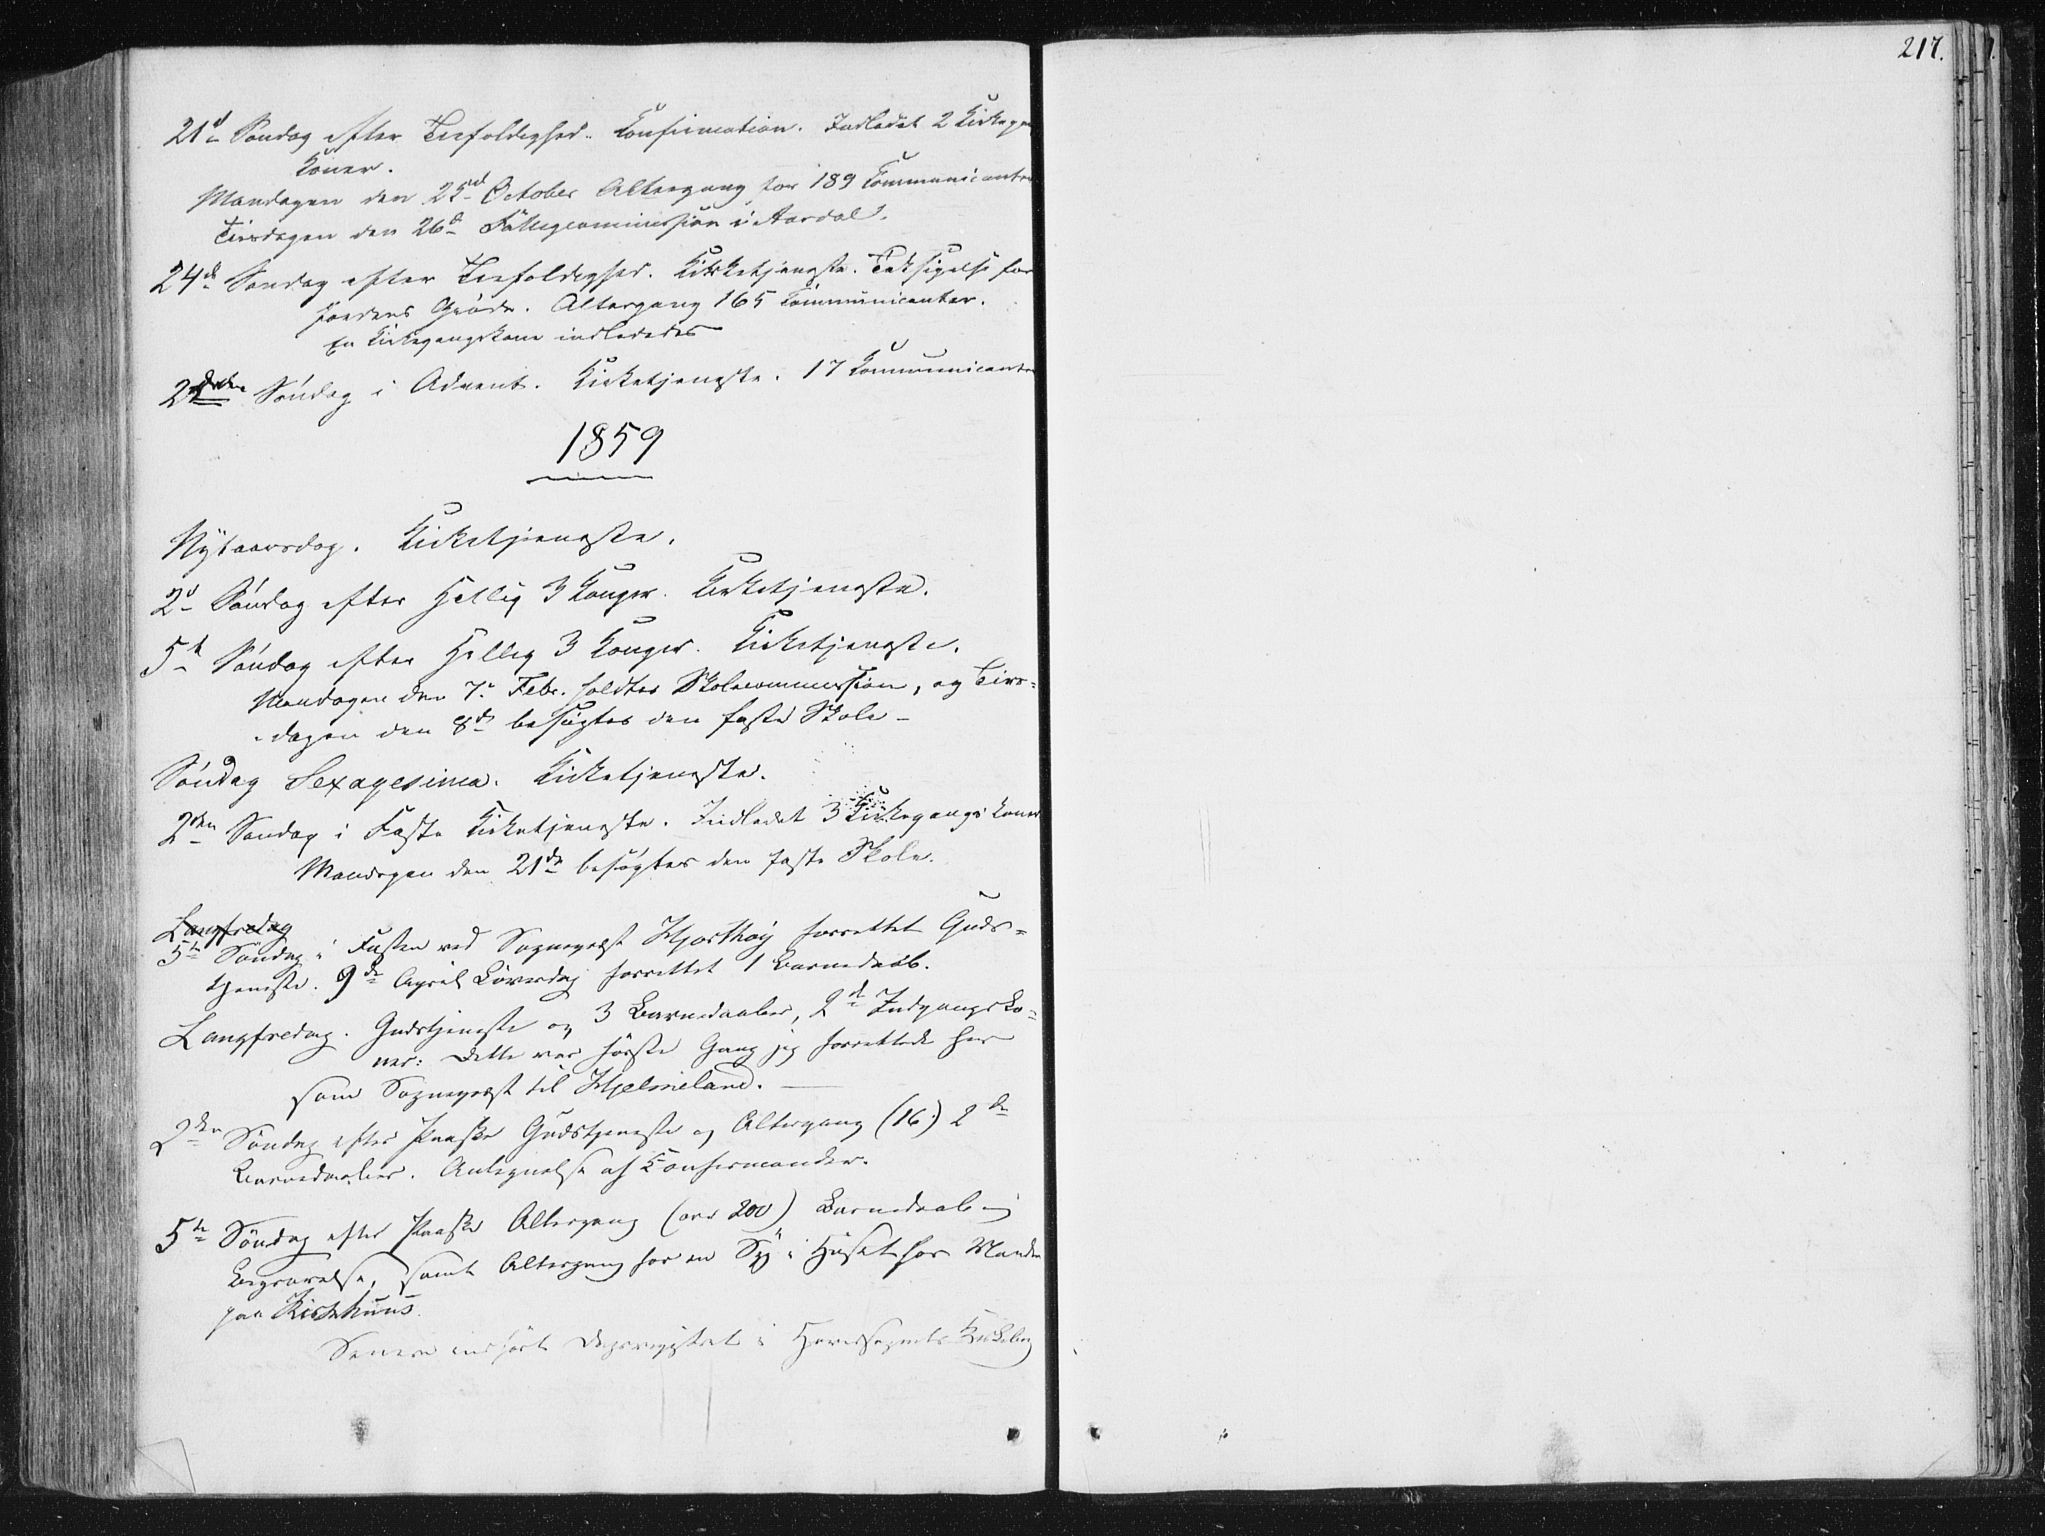 217.
21d Søndag efter Trefoldighed. Confirmation. Indledet 2 Kirkegangs
Koner.
Mandagen den 25d October Altergang for 189 Communicanter
Tirsdagen den 26d Fattigcommission i Aardal.
24de Søndag efter Trefoldighed. Kirketjeneste. Taksigelse for
Jordens Grøde. Altergang 165 Communicanter.
En Kirkegangskone indlededes
2den Søndag i Advent. Kirketjeneste. 17 Communicanter
1859
Nytaarsdag. Kirketjeneste.
2d Søndag efter Hellig 3 Konger. Kirketjeneste.
5te Søndag efter Hellig 3 Konger. Kirketjeneste.
Mandagen den 7. Febr. holdtes Skolecommission, og Tirs=
dagen den 8de besøgtes den faste Skole -
Søndag Sexagesima. Kirketjeneste.
2den Søndag i Faste Kirketjeneste. Indledet 3 Kirkegangskoner
Mandagen den 21de besøgtes den faste Skole.
Langfredag
5te Søndag i Fasten ved Sogneprest Hjorthøy forrettet Guds=
tjeneste. 9de April Løverdag forrettet 1 Barnedaab.
Langfredag. Gudstjeneste og 3 Barnedaaber, 2de Indgangsko=
ner: Dette var første Gang jeg forrettede her
som Sogneprest til Hjelmeland.
2den Søndag efter Paaske Gudstjeneste og Altergang (16) 2de
Barnedaaber. Antegnelse af Confirmander.
5te Søndag efter Paaske Altergang (over 200) Barnedaab og
Begravelse, samt Altergang for en Syg i Huset hos Manden
paa
Senere indført Dagregistret i Hovedsognets Kirkebog